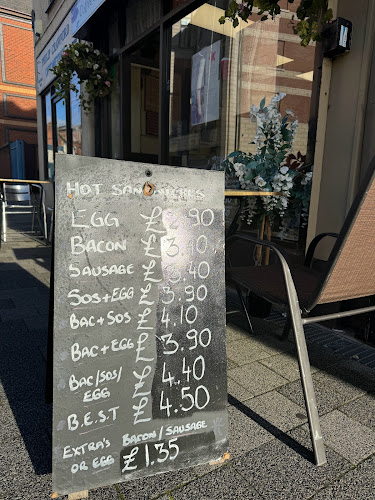 HOT SANDWICHES
EGG £2.90
BACON £3.40
SAUSAGE £3.40
SOS+EGG £3.90
BAC+SOS £4.10
BAC+EGG £3.90
BAC/SOS/ £4.40
EGG
B.E.S.T £4.50
EXTRA'S BACON/SAUSAGE
OR EGG £1.35